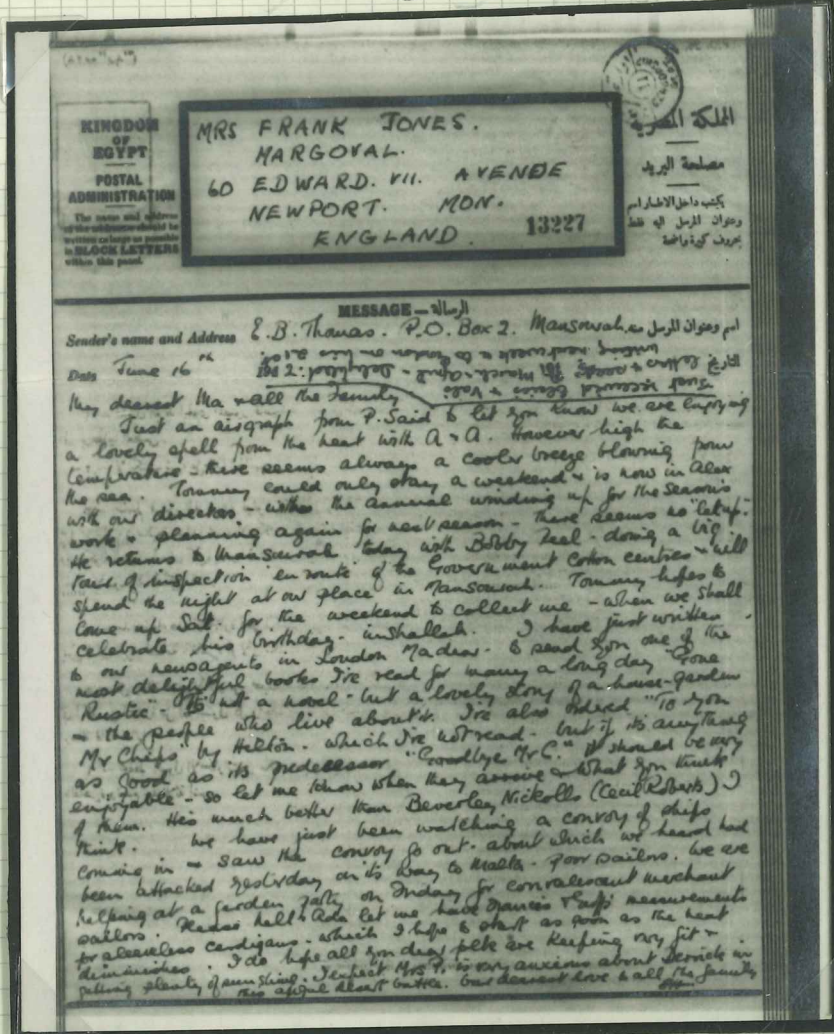 KINGDOM
OF
EGYPT
POSTAL
ADMINISTRATION
The name and address
of the addressee should be
written as large as possible
in BLOCK LETTERS
within this panel.
MRS FRANK JONES.
MARGOVAL.
60 EDWARD. VII. AVENUE
NEWPORT. MON.
ENGLAND.
13227
المملكة المصرية
مصلحة البريد
يكتب داخل الاطار اسم
وعنوان المرسل اليه فقط
بحروف كبيرة واضحة
MESSAGE — الرسالة
Sender's name and Address E.B. Thomas. P.O. Box 2. Mansourah. اسم وعنوان المرسل منه
Date June 16th التاريخ
Just received Letters & cards for March - April - Delighted.
writing next week to on his
My dearest Ma & all the Family
Just an airgraph from P. Said to let you know we are enjoying
a lovely spell from the heat with A & A. However high the
temperature - there seems always a cooler breeze blowing from
the sea. Tommy could only stay a weekend & is now in Alex
with our director - with the annual winding up for the season's
work & planning again for next season - there seems no "let up".
He returns to Mansourah today with Bobby - doing a big
tour of inspection 'en route' of the Government Cotton centres & will
spend the night at our place in Mansourah. Tommy hopes to
come up Sat. for the weekend to collect me - when we shall
celebrate his birthday - inshallah. I have just written
to our newsagents in London - to send you one of the
most delightful books I've read for many a long day - "Gone
Rustic" - It's not a novel - but a lovely story of a house - garden
& the people who live about it. I've also ordered "To you
Mr Chips" by Hilton. which I've not read - but if its anything
as good as its predecessor "Goodbye Mr C." it should be very
enjoyable - so let me know when they arrive & what you think
of them. He's much better than Beverley Nickolls (Cecil Roberts) I
think. We have just been watching a convoy of ships
coming in & saw the convoy go out. about which we heard had
been attacked yesterday on its way to Malta. poor sailors. We are
helping at a garden party on Friday for convalescent merchant
sailors. Please tell Ada let me have Francis & measurements
for sleeveless cardigans - which I hope to start as soon as the heat
diminishes. I do hope all you dear folk are keeping very fit &
getting plenty of sunshine. I expect Mrs P. is very anxious about Derrick in
this awful desert battle. Our dearest love to all the family